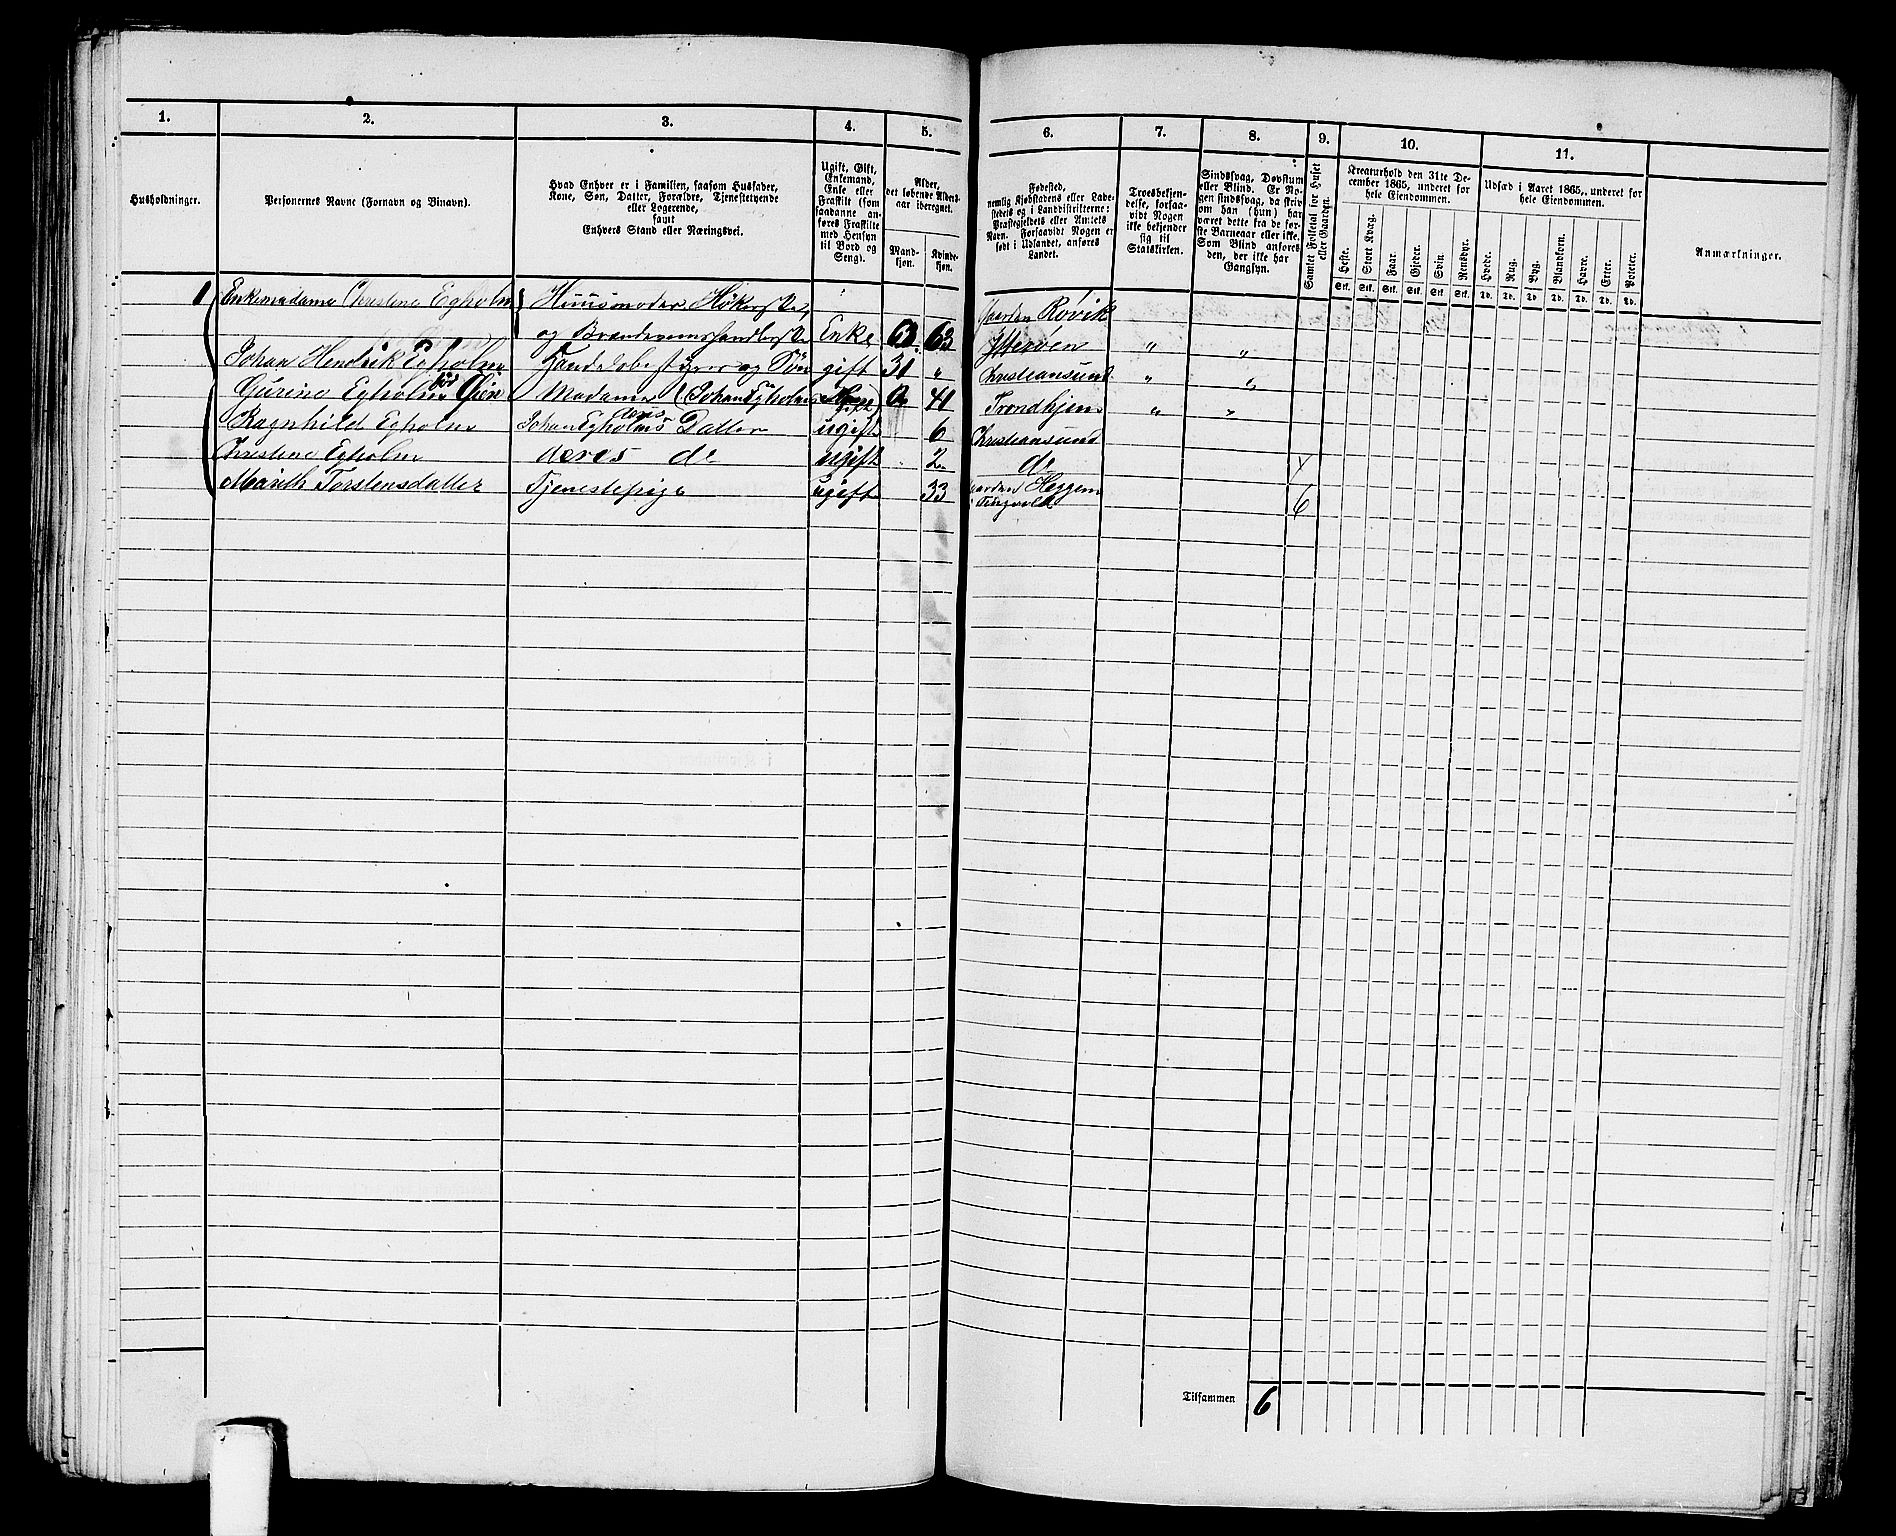 1. 2. 3. 4. 5. 6. 7. 8. 9. 10. 11.
Husholdninger.
Personernes Navne (Fornavn og Binavn).
Hvad Enhver er i Familien, saasom Husfader,
Kone, Søn, Datter, Forældre, Tjenestetyende
eller Logerende,
samt
Enhvers Stand eller Næringsvei.
Ugift, Gift,
Enkemand,
Enke eller
Fraskilt (som
saadanne an-
føres Fraskilte
med Hensyn
til Bord og
Seng).
Alder,
det løbende Alders-
aar iberegnet.
Mand-
kjøn.
Kvinde-
kjøn.
Fødested,
nemlig Kjøbstadens eller Lade-
stedets og i Landdistrikterne:
Præstegjeldets eller Amtets
Navn. Forsaavidt Nogen er
født i Udlandet, anføres
Landet.
Troesbekjen-
delse, forsaa-
vidt Nogen
ikke bekjender
sig til
Statskirken.
Sindssvag, Døvstum
eller Blind. Er No-
gen sindssvag, da skriv
om han (hun) har
været dette fra de før-
ste Barneaar eller ikke.
Som Blind anføres
den, der ikke har
Gangsyn.
Samlet Folketal for Huset
eller Gaarden.
Kreaturhold den 31te De-
cember 1865, underet for
hele Eiendommen.
Heste. Stort Kvæg. Faar. Gjeder. Svin. Rensdyr.
Stk. Stk. Stk. Stk. Stk. Stk.
Udsæd i Aaret 1865, underet for
hele Eiendommen.
Hvede. Rug. Byg. Blandkorn. Havre. Erter. Poteter.
Td. Td. Td. Td. Td. Td. Td.
Anmærkninger.
1 Enkemadame Christine Egholm Huusmoder, Høkerske, Gaarden Rovik
og Brændeviinshandlerske Enke 63 " "
Johan Hendrik Egholm og Søn gift 31 " Christiansund " "
Gurine Egholm fød Øien Madame (Johan Egholms gift 41 Trondhjem " "
Ragnhild Egholm Johan Egholms Datter ugift 6 Christiansund
Christine Egholm deres do ugift 2 do
Marith Torstensdatter Tjenestepige ugift 33 Gaarden Heggem
Tingvold 6
Tilsammen 6